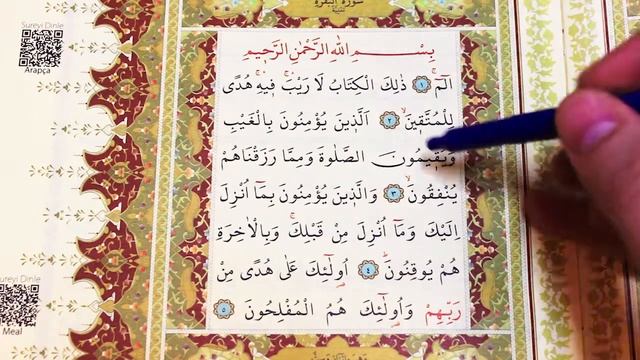 سورة البقرة
Sureyi Dinle
Arapça
بِسْمِ اللّٰهِ الرَّحْمٰنِ الرَّحِيمِ
الٓمٓ ﴿١﴾ ذٰلِكَ الْكِتَابُ لَا رَيْبَۚ ف۪يهِۚ هُدًى
لِلْمُتَّق۪ينَۙ ﴿٢﴾ اَلَّذ۪ينَ يُؤْمِنُونَ بِالْغَيْبِ
وَيُق۪يمُونَ الصَّلٰوةَ وَمِمَّا رَزَقْنَاهُمْ
يُنْفِقُونَۙ ﴿٣﴾ وَالَّذ۪ينَ يُؤْمِنُونَ بِمَٓا اُنْزِلَ
اِلَيْكَ وَمَٓا اُنْزِلَ مِنْ قَبْلِكَۚ وَبِالْاٰخِرَةِ
هُمْ يُوقِنُونَۜ ﴿٤﴾ اُو۬لٰٓئِكَ عَلٰى هُدًى مِنْ
رَبِّهِمْ وَاُو۬لٰٓئِكَ هُمُ الْمُفْلِحُونَ ﴿٥﴾
Sureyi Dinle
Meal